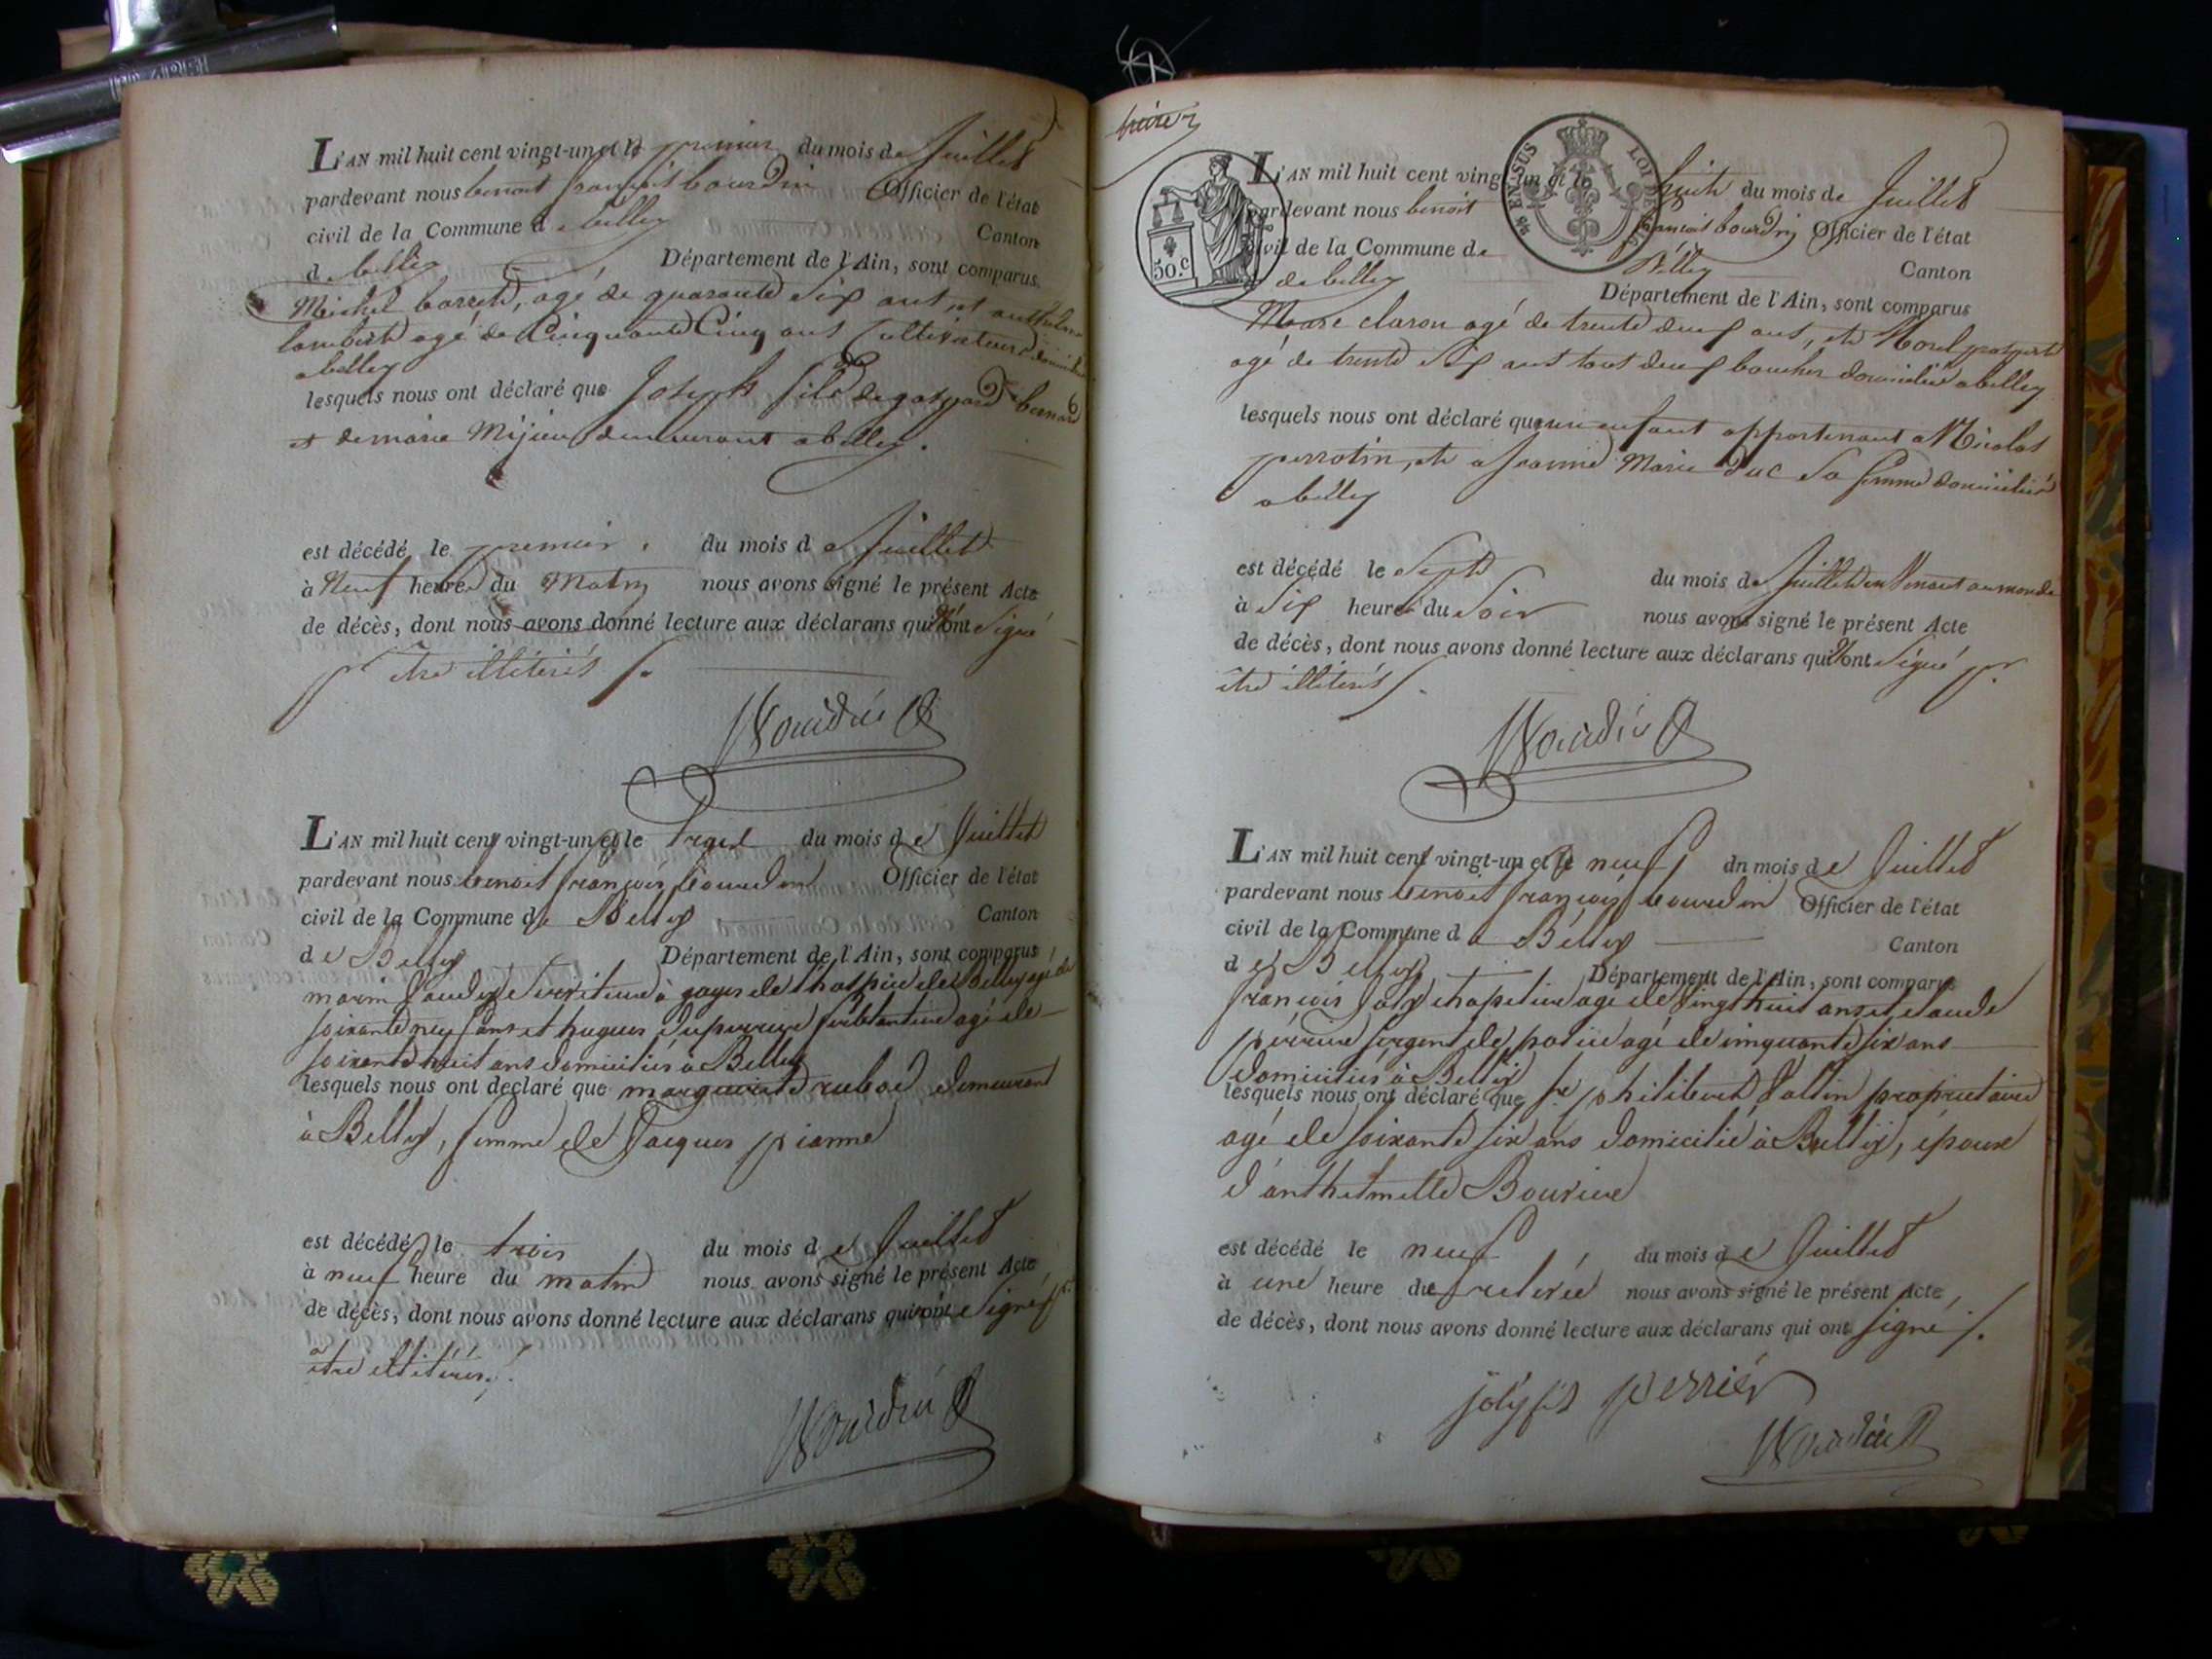 L'AN mil huit cent vingt-un et le premier du mois de Juillet
pardevant nous benoit françois bourdin Officier de l'état
civil de la Commune de belley Canton
de belley Département de l'Ain, sont comparus
Michel barret, agé de quarante Six ans, et anthelme
lambert agé de Cinquante Cinq ans Cultivateurs
a belley
lesquels nous ont déclaré que Joseph fils de gaspard bernard
et de marie Mijieu demeurant a belley.
est décédé le premier du mois de Juillet
à Neuf heures du Matin nous avons signé le présent Acte
de décès, dont nous avons donné lecture aux déclarans qui n'ont Signé
pr etre illiterés
Bourdin
L'AN mil huit cent vingt-un et le trois du mois de Juillet
pardevant nous benoit françois bourdin Officier de l'état
civil de la Commune de Belley Canton
de Belley Département de l'Ain, sont comparus
marin à gages de l'hospice de Belley agé de
soixante neuf ans et hugues duperrieu agé de
soixante huit ans domiciliés à Belley
lesquels nous ont déclaré que marguerite demeurant
à Belley, femme de Jacques pianne
est décédé le trois du mois de Juillet
à neuf heure du matin nous avons signé le présent Acte
de décès, dont nous avons donné lecture aux déclarans qui n'ont Signé pr.
être illitérés.
Bourdin
50.C
EN SUS LOI DE
L'AN mil huit cent vingt-un et le huit du mois de Juillet
pardevant nous benoit françois bourdin Officier de l'état
civil de la Commune de Belley Canton
de belley Département de l'Ain, sont comparus
Marc claron agé de trente deux ans, et Morel gaspard
agé de trente Six ans tout deux boucher domicilié a belley
lesquels nous ont déclaré que un enfant appartenant a Nicolas
perrotin, et a Jeanne Marie Duc Sa femme domicilié
a belley
est décédé le Sept du mois de Juillet en Venant au monde
à Six heures du Soir nous avons signé le présent Acte
de décès, dont nous avons donné lecture aux déclarans qui n'ont Signé pr.
etre illiterés
Bourdin
L'AN mil huit cent vingt-un et le neuf du mois de Juillet
pardevant nous benoit françois bourdin Officier de l'état
civil de la Commune de Belley Canton
de Belley Département de l'Ain, sont comparus
françois Joly chapelier agé de vingt huit ans et claude
perrier sergent de police agé de cinquante six ans
domiciliés à Belley
lesquels nous ont déclaré que sr philibert Vallin propriétaire
agé de soixante six ans domicilié à Belley, époux
d'anthelmette
est décédé le neuf du mois de Juillet
à une heure de relevée nous avons signé le présent Acte
de décès, dont nous avons donné lecture aux déclarans qui ont signé.
joly fils perrier
Bourdin